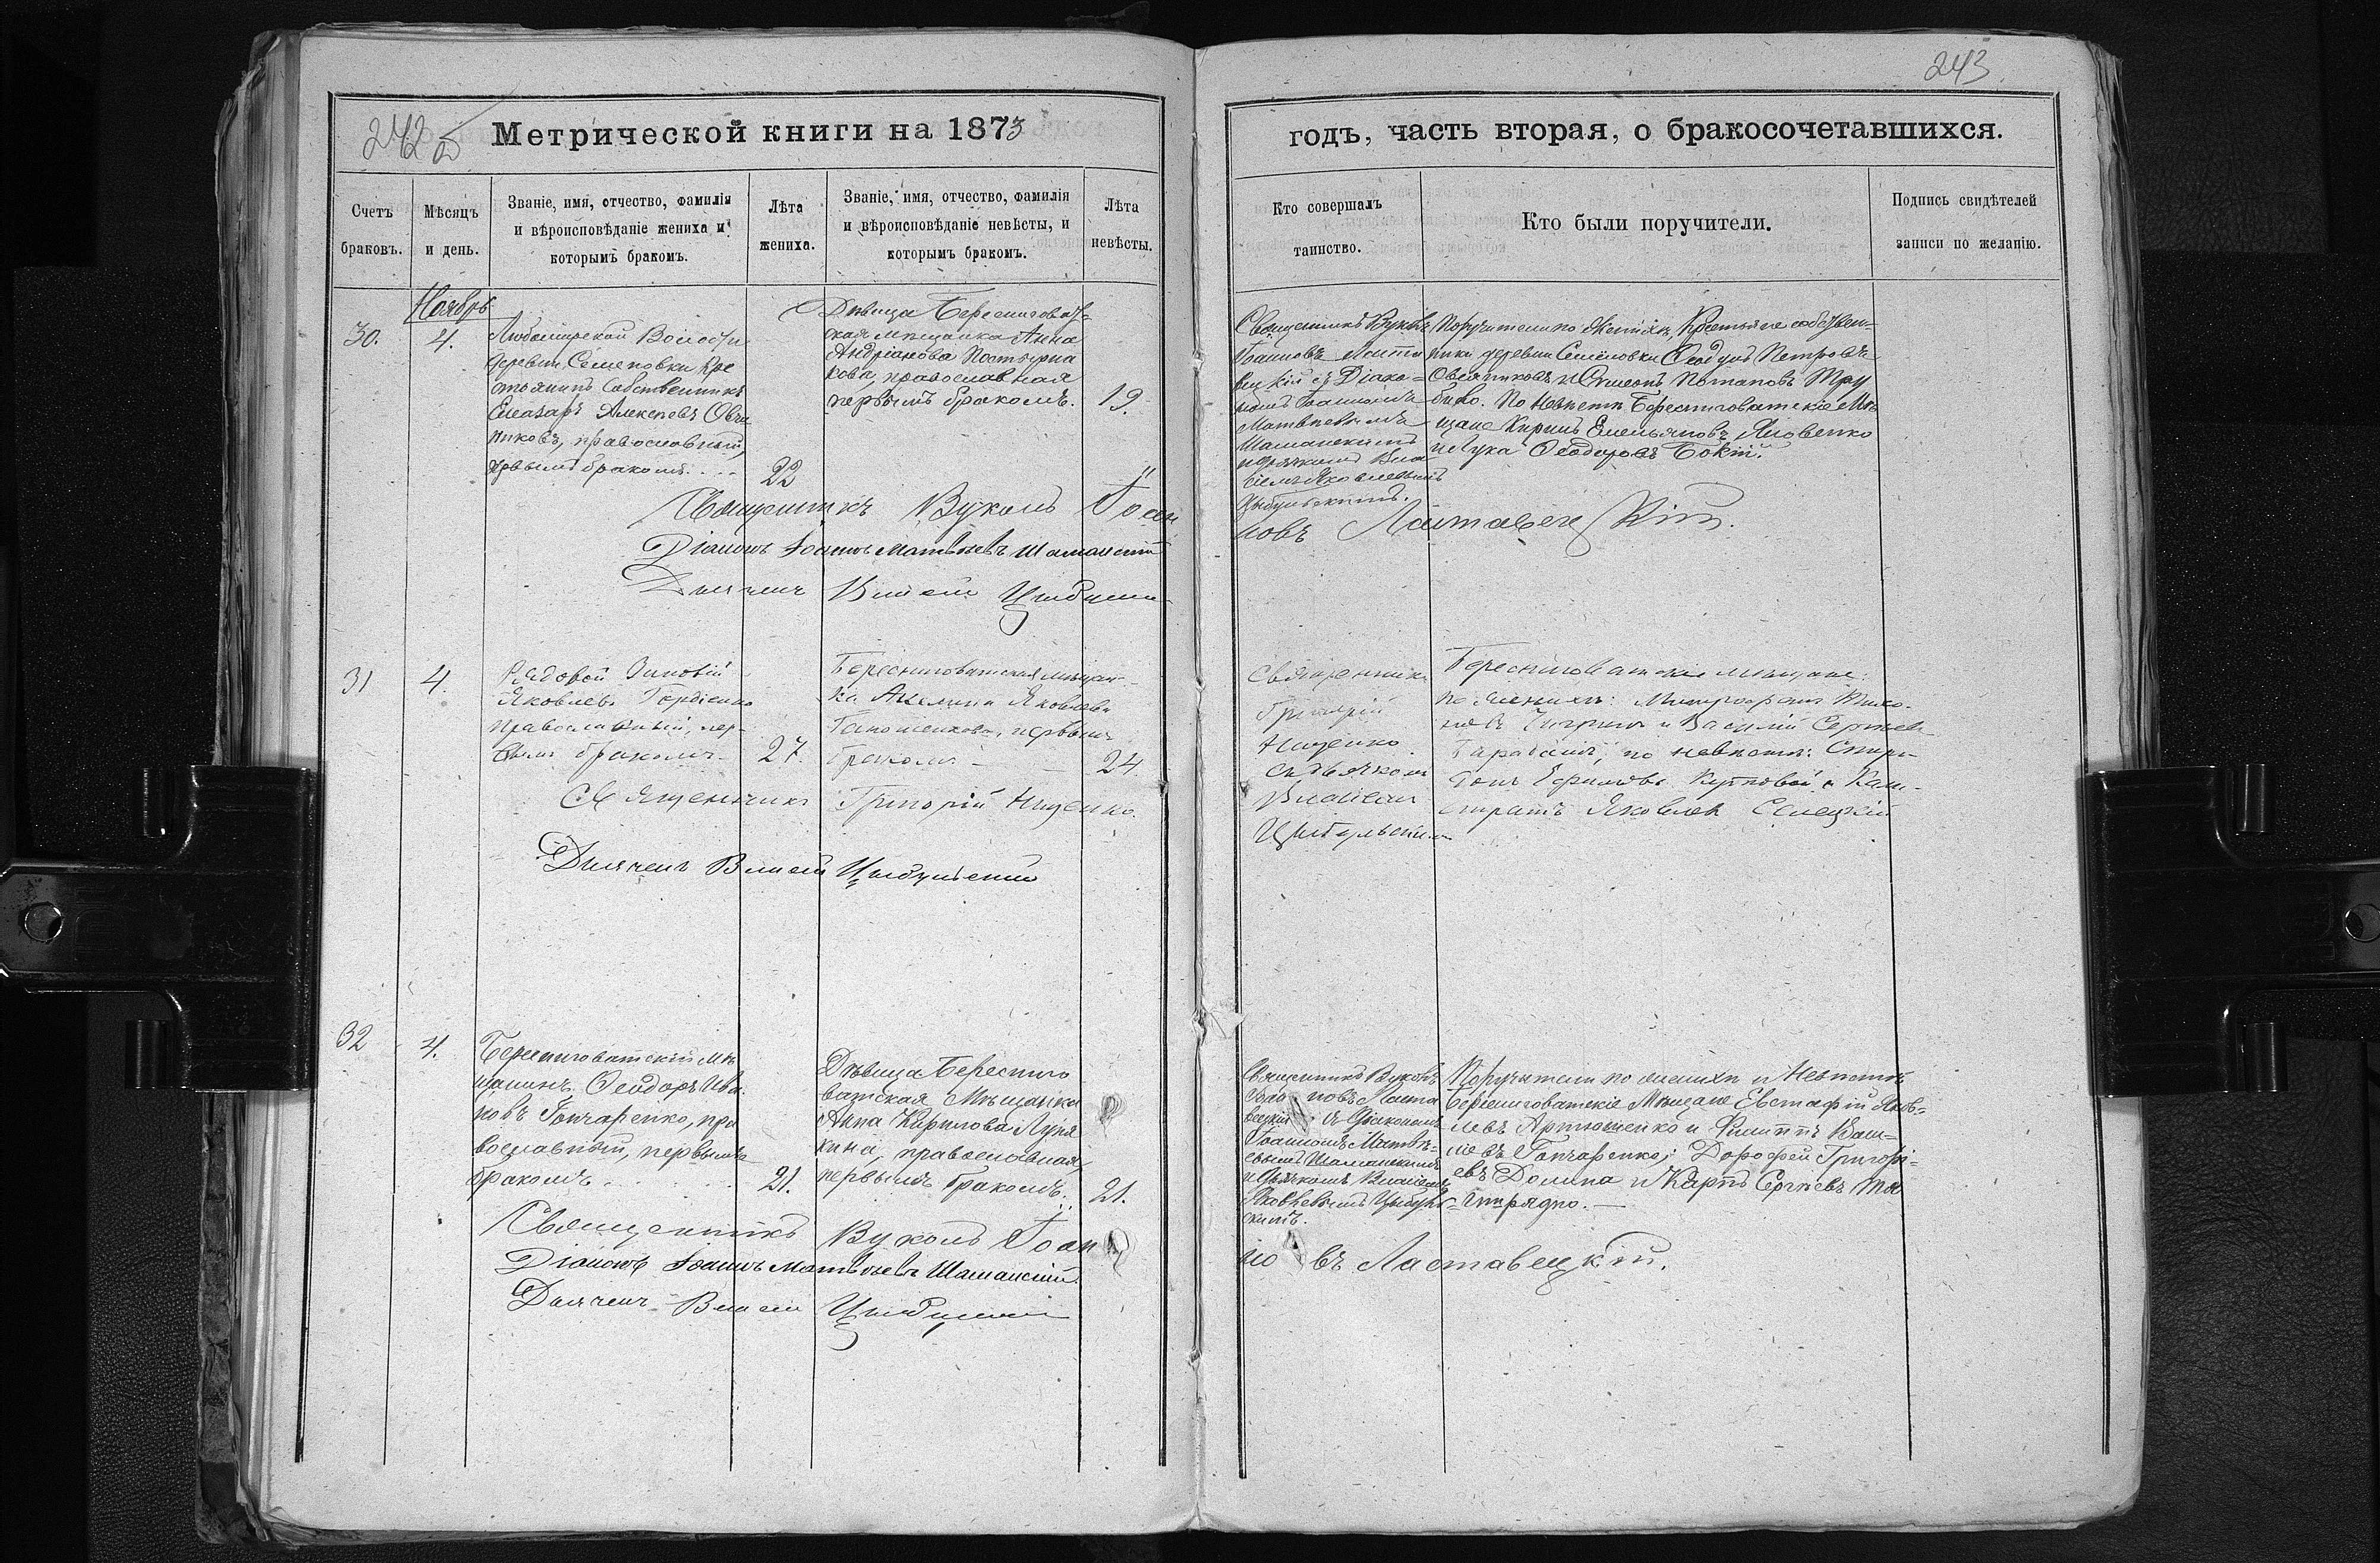 243
242 об
Метрической книги на 1873
годъ, часть вторая, о бракосочетавшихся.
Счетъ браковъ.
Мѣсяцъ и день.
Званіе, имя, отчество, фамилія
и вѣроисповѣданіе жениха и
которымъ бракомъ.
Лѣта
жениха.
Званіе, имя, отчество, фамилія
и вѣроисповѣданіе невѣсты, и
которымъ бракомъ.
Лѣта
невѣсты.
Кто совершалъ
таинство.
Кто были поручители.
Подпись свидѣтелей
записи по желанію.
Ноябрь
30.
4.
Любомирской Волости
деревни Семеновки Кре
стьянинъ Собственникъ
Елеазаръ Алексѣевъ Овчи
никовъ, православный,
первымъ бракомъ.
22
Дѣвица Береснигова
ская мѣщанка Анна
Андріанова
кова, православная
первымъ бракомъ.
19.
Священникъ Вуколъ
Іоанновъ Ласта
вецкій съ Діако=
номъ Іоанномъ
Матвѣевымъ
Шаманскимъ
и дьячкомъ Вла
сіемъ Яковлевымъ
Цыбульскимъ.
Поручители по женихѣ, Крестьяне собствен=
ники деревни Семеновки Ѳеодулъ Петровъ
Овсянниковъ и Симеонъ Потаповъ Тру
бико. По Невѣстѣ Бересниговатскіе Мѣ
щане Кирилъ Емельяновъ Яковенко
и Лука Ѳеодоровъ Бокій.
Священникъ Вуколъ Іоан
новъ Ластавецкій.
Діаконъ Іоаннъ Матвѣевъ Шаманскій
Дьячекъ Власій
31
4.
Рядовой Зиновій
Яковлевъ Гордіенко
православный, пер-
вымъ бракомъ
27.
Бересниговатская мѣщан-
ка Яковлева
первымъ
бракомъ
24.
Священникъ
Григорій
Ищенко
съ дьячкомъ
Власіемъ
Цыбульскимъ
Бересниговатскіе мѣщане:
по женихѣ: Митрофанъ
и Василій Сергѣев
по невѣстѣ: Спири-
донъ Ефимовъ и Кали-
стратъ Яковлев
Священникъ Григорій Ищенко.
Дьячекъ Власій Цыбульскій
32
4.
Бересниговатскій мѣ
щанинъ Ѳеодоръ Ива
новъ Гончаренко, пра
вославный, первымъ
бракомъ
21.
Дѣвица Береснего
ватская Мѣщанка
Анна Кирилова Луня
кина, православная,
первымъ бракомъ.
21.
Священникъ Вуколъ
Іоановъ Ласта
вецкій съ Діакономъ
Іоанномъ Матвѣ-
евымъ Шаманскимъ
и дьячкомъ Власіемъ
Яковлевымъ Цыбуль
скимъ.
Поручители по женихѣ и Невѣстѣ
Береснеговатскіе Мѣщане Евстафій Яков=
левъ Артюшенко и Филиппъ
Гончаренко; Дорофей Григорі=
евъ Долина и Карпъ Сергѣевъ
Священникъ Вуколъ Іоан
но въ Ластавецкій.
Діаконъ Іоаннъ Матвѣевъ Шаманскій.
Дьячекъ Власій